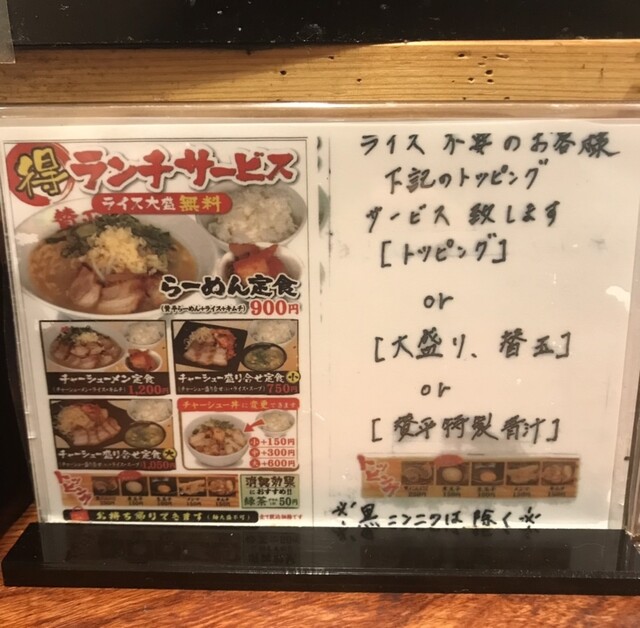 得 ランチサービス
ライス大盛 無料
らーめん定食
(賛平らーめん+ライス+キムチ) 900円
チャーシューメン定食
(チャーシューメン+ライス+キムチ) 1,200円
チャーシュー盛り合せ定食 小
750円
チャーシュー盛り合せ定食 大
1,050円
チャーシュー丼に変更できます
小+150円
中+300円
大+600円
トッピング
消臭効果
におすすめ!!
緑茶 50円
お持ち帰りできます
ライス不要のお客様
下記のトッピング
サービス致します
[トッピング]
or
[大盛り、替玉]
or
[賛平特製青汁]
トッピング
※黒ニンニクは除く※